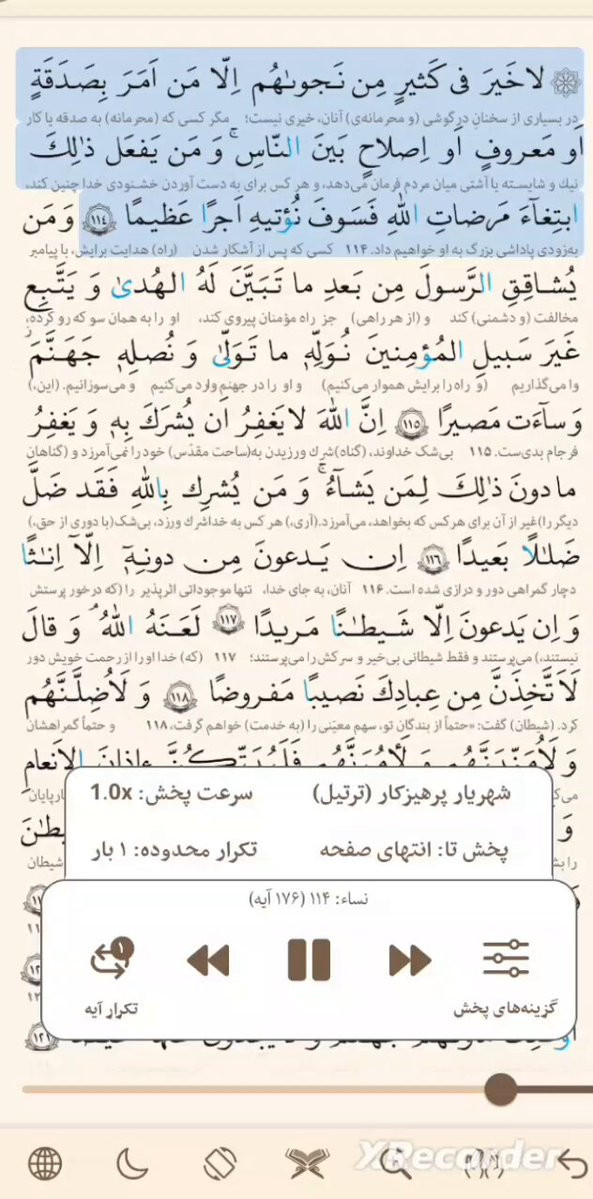 لا خَيرَ فى كَثيرٍ مِن نَجوىٰهُم اِلّا مَن اَمَرَ بِصَدَقَةٍ
در بسیاری از سخنان درگوشی (و محرمانه‌ی) آنان، خیری نیست؛ مگر کسی که (محرمانه) به صدقه یا کار
اَو مَعروفٍ اَو اِصلاحٍ بَينَ النّاسِ ۚ وَ مَن يَفعَل ذٰلِكَ
نیك و شایسته یا آشتی میان مردم فرمان می‌دهد، و هر کس برای به دست آوردن خشنودی خدا چنین کند،
ابتِغآءَ مَرضاتِ اللّٰهِ فَسَوفَ نُؤتيهِ اَجرًا عَظيمًا ﴿۱۱۴﴾ وَ مَن
به‌زودی پاداشی بزرگ به او خواهیم داد. ۱۱۴ کسی که پس از آشکار شدن (راه) هدایت برایش، با پیامبر
يُشاقِقِ الرَّسولَ مِن بَعدِ ما تَبَيَّنَ لَهُ الهُدىٰ وَ يَتَّبِع
مخالفت (و دشمنی) کند و (از هر راهی) جز راه مؤمنان پیروی کند، او را به همان سو که رو کرده،
غَيرَ سَبيلِ المُؤمِنينَ نُوَلِّهٖ ما تَوَلّىٰ وَ نُصلِهٖ جَهَنَّمَ
وا می‌گذاریم (و راه را برایش هموار می‌کنیم) و او را در جهنم وارد می‌کنیم و می‌سوزانیم. (این،)
وَ سآءَت مَصيرًا ﴿۱۱۵﴾ اِنَّ اللّٰهَ لا يَغفِرُ اَن يُشرَكَ بِهٖ وَ يَغفِرُ
فرجام بدی‌ست. ۱۱۵ بی‌شک خداوند، (گناه) شرك ورزیدن به (ساحت مقدّس) خود را نمی‌آمرزد و (گناهان
ما دونَ ذٰلِكَ لِمَن يَشآءُ ۚ وَ مَن يُشرِك بِاللّٰهِ فَقَد ضَلَّ
دیگر را) غیر از آن برای هر کس که بخواهد، می‌آمرزد. (آری،) هر کس به خدا شرك ورزد، بی‌شک (با دوری از حق،)
ضَلٰلًا بَعيدًا ﴿۱۱۶﴾ اِن يَدعونَ مِن دونِهٖٓ اِلّآ اِنٰثًا
دچار گمراهی دور و درازی شده است. ۱۱۶ آنان، به جای خدا، تنها موجوداتی اثرپذیر را (که درخور پرستش
وَ اِن يَدعونَ اِلّا شَيطٰنًا مَريدًا ﴿۱۱۷﴾ لَعَنَهُ اللّٰهُ ۘ وَ قالَ
نیستند،) می‌پرستند و فقط شیطانی بی‌خیر و سرکش را می‌پرستند؛ ۱۱۷ (که) خدا او را از رحمت خویش دور
لَاَتَّخِذَنَّ مِن عِبادِكَ نَصيبًا مَفروضًا ﴿۱۱۸﴾ وَ لَاُضِلَّنَّهُم
کرد. (شیطان) گفت: «حتماً از بندگان تو، سهم معیّنی را (به خدمت) خواهم گرفت، ۱۱۸ و حتماً گمراهشان
وَ لَاُمَنِّيَنَّهُم وَ لَآمُرَنَّهُم فَلَيُبَتِّكُنَّ ءاذانَ الاَنعامِ
شهریار پرهیزکار (ترتیل) سرعت پخش: 1.0x
پخش تا: انتهای صفحه تکرار محدوده: ۱ بار
نساء: ۱۱۴ (۱۷۶ آیه)
۱
گزینه‌های پخش تکرار آیه
XRecorder